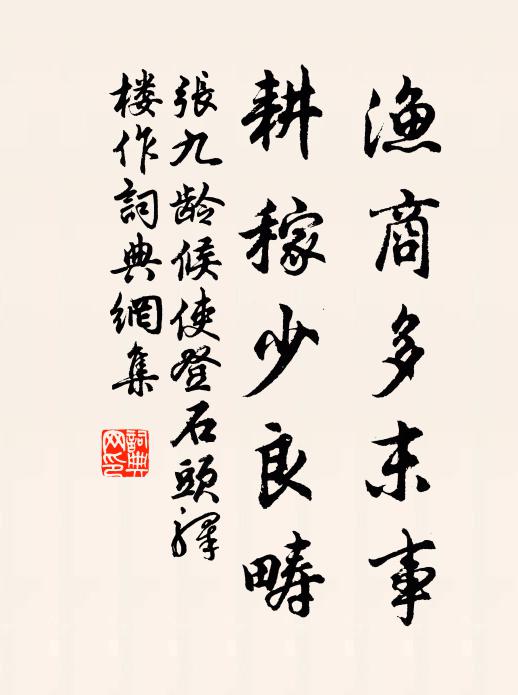 漁商多末事
耕稼少良疇
張九齡候使登石頭驛
樓作詞典網集
詞典網印